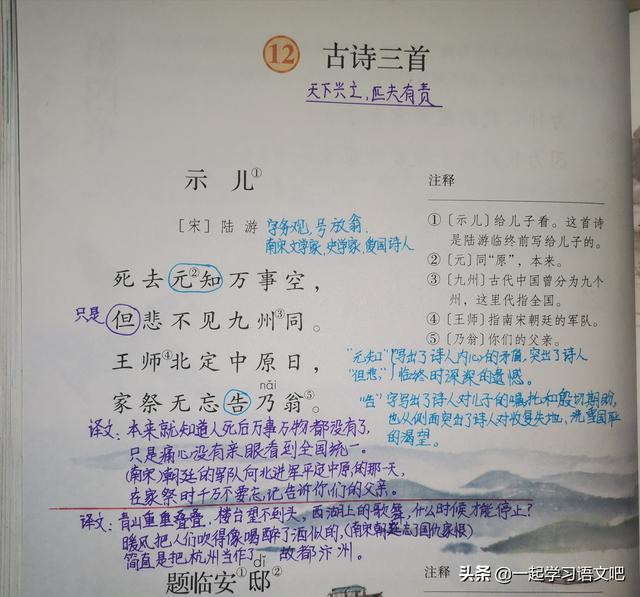 12 古诗三首
天下兴亡,匹夫有责
示儿①
[宋] 陆游 字务观,号放翁.
南宋文学家,史学家,爱国诗人
死去元②知万事空,
只是 但悲不见九州③同。
王师④北定中原日,
nǎi
家祭无忘告乃翁⑤。
注释
①〔示儿〕给儿子看。这首诗
是陆游临终前写给儿子的。
②〔元〕同“原”,本来。
③〔九州〕古代中国曾分为九个
州,这里代指全国。
④〔王师〕指南宋朝廷的军队。
⑤〔乃翁〕你们的父亲。
“元知”写出了诗人内心的矛盾,突出了诗人
“但悲”临终时深深的遗憾。
“告”字写出了诗人对儿子的嘱托和殷切期盼,
也从侧面突出了诗人对收复失地、洗雪国耻
的渴望。
译文:本来就知道人死后万事万物都没有了,
只是痛心没有亲眼看到全国统一。
(南宋)朝廷的军队向北进军平定中原的那一天,
在家祭时千万不要忘记告诉你们的父亲。
译文:青山重重叠叠,楼台望不到头,西湖上的歌舞,什么时候才能停止?
暖风把人们吹得像喝醉了酒似的,(南宋朝廷忘了国仇家恨)
简直是把杭州当作了故都汴州。
dǐ
题临安①邸②
注释
头条 @一起学习语文吧